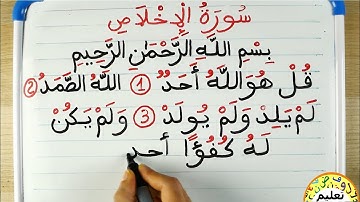 سُورَةُ الْإِخْلَاصِ
بِسْمِ اللَّهِ الرَّحْمَٰنِ الرَّحِيمِ
قُلْ هُوَ اللَّهُ أَحَدٌ ① اللَّهُ الصَّمَدُ ②
لَمْ يَلِدْ وَلَمْ يُولَدْ ③ وَلَمْ يَكُنْ
لَهُ كُفُوًا أحد
تعليم